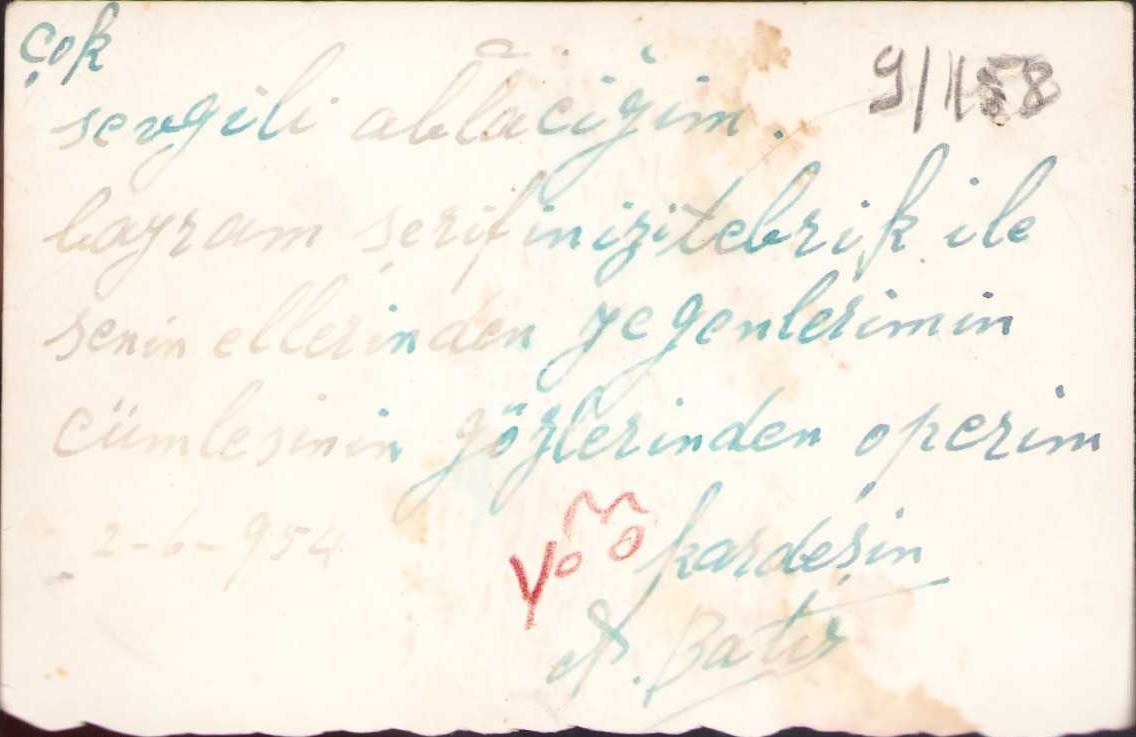 Çok
sevgili ablacığım.
bayram şerifinizi tebrik ile
senin ellerinden yegenlerimin
cümlesinin gözlerinden operim
2-6-954
kardeşin